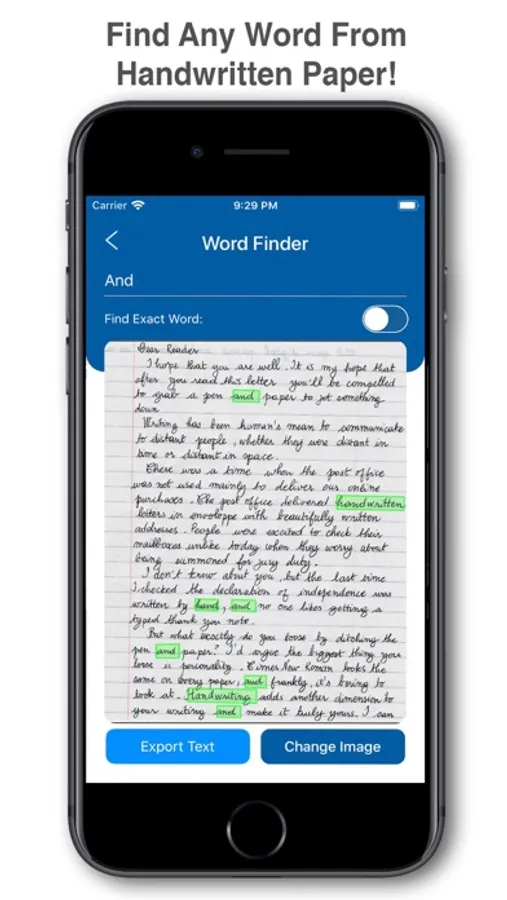 Find Any Word From
Handwritten Paper!
Carrier 9:29 PM
Word Finder
And
Find Exact Word:
Dear Reader
I hope that you are well. It is my hope that
after you read this letter you'll be compelled
to grab a pen and paper to jot something
down
Writing has been human's mean to communicate
to distant people, whether they were distant in
time or distant in space.
There was a time when the post office
was not used mainly to deliver our online
purchases. The post office delivered handwritten
letters in enveloppe with beautifully written
addresses. People were excited to check their
mailboxes unlike today when they worry about
being summoned for jury duty.
I don't know about you, but the last time
I checked the declaration of independence was
written by hand, and no one likes getting a
typed thank you note.
But what exactly do you loose by ditching the
pen and paper? I'd argue the biggest thing you
lose is personality. Times New Roman looks the
same on every paper, and frankly, it's boring to
look at. Handwriting adds another dimension to
your writing and make it truly yours. I can
Export Text
Change Image